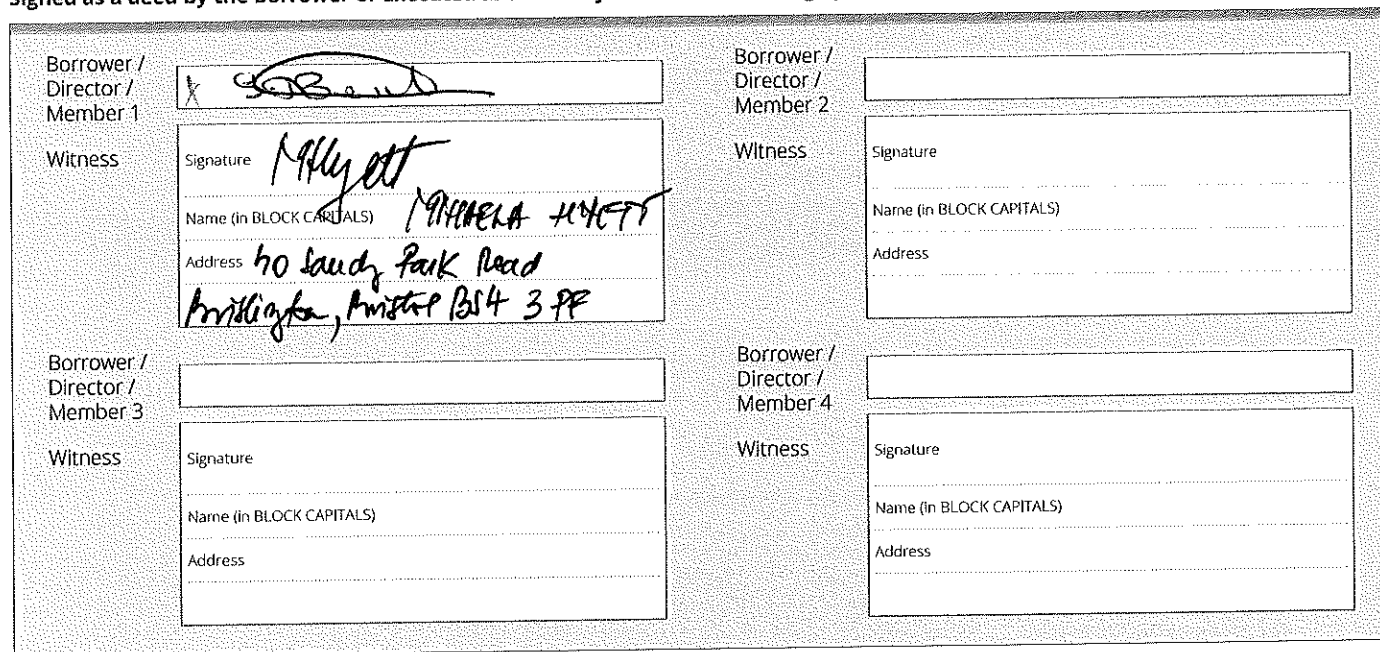 Signed as a deed by the borrower or
Borrower /
Director /
Member 1
x
Witness
Signature MHyett
Name (in BLOCK CAPITALS) MIHAELA HYETT
Address Sandy Park Road
Brislington, Bristol BS4 3PF
Borrower /
Director /
Member 2
Witness
Signature
Name (in BLOCK CAPITALS)
Address
Borrower /
Director /
Member 3
Witness
Signature
Name (in BLOCK CAPITALS)
Address
Borrower /
Director /
Member 4
Witness
Signature
Name (in BLOCK CAPITALS)
Address